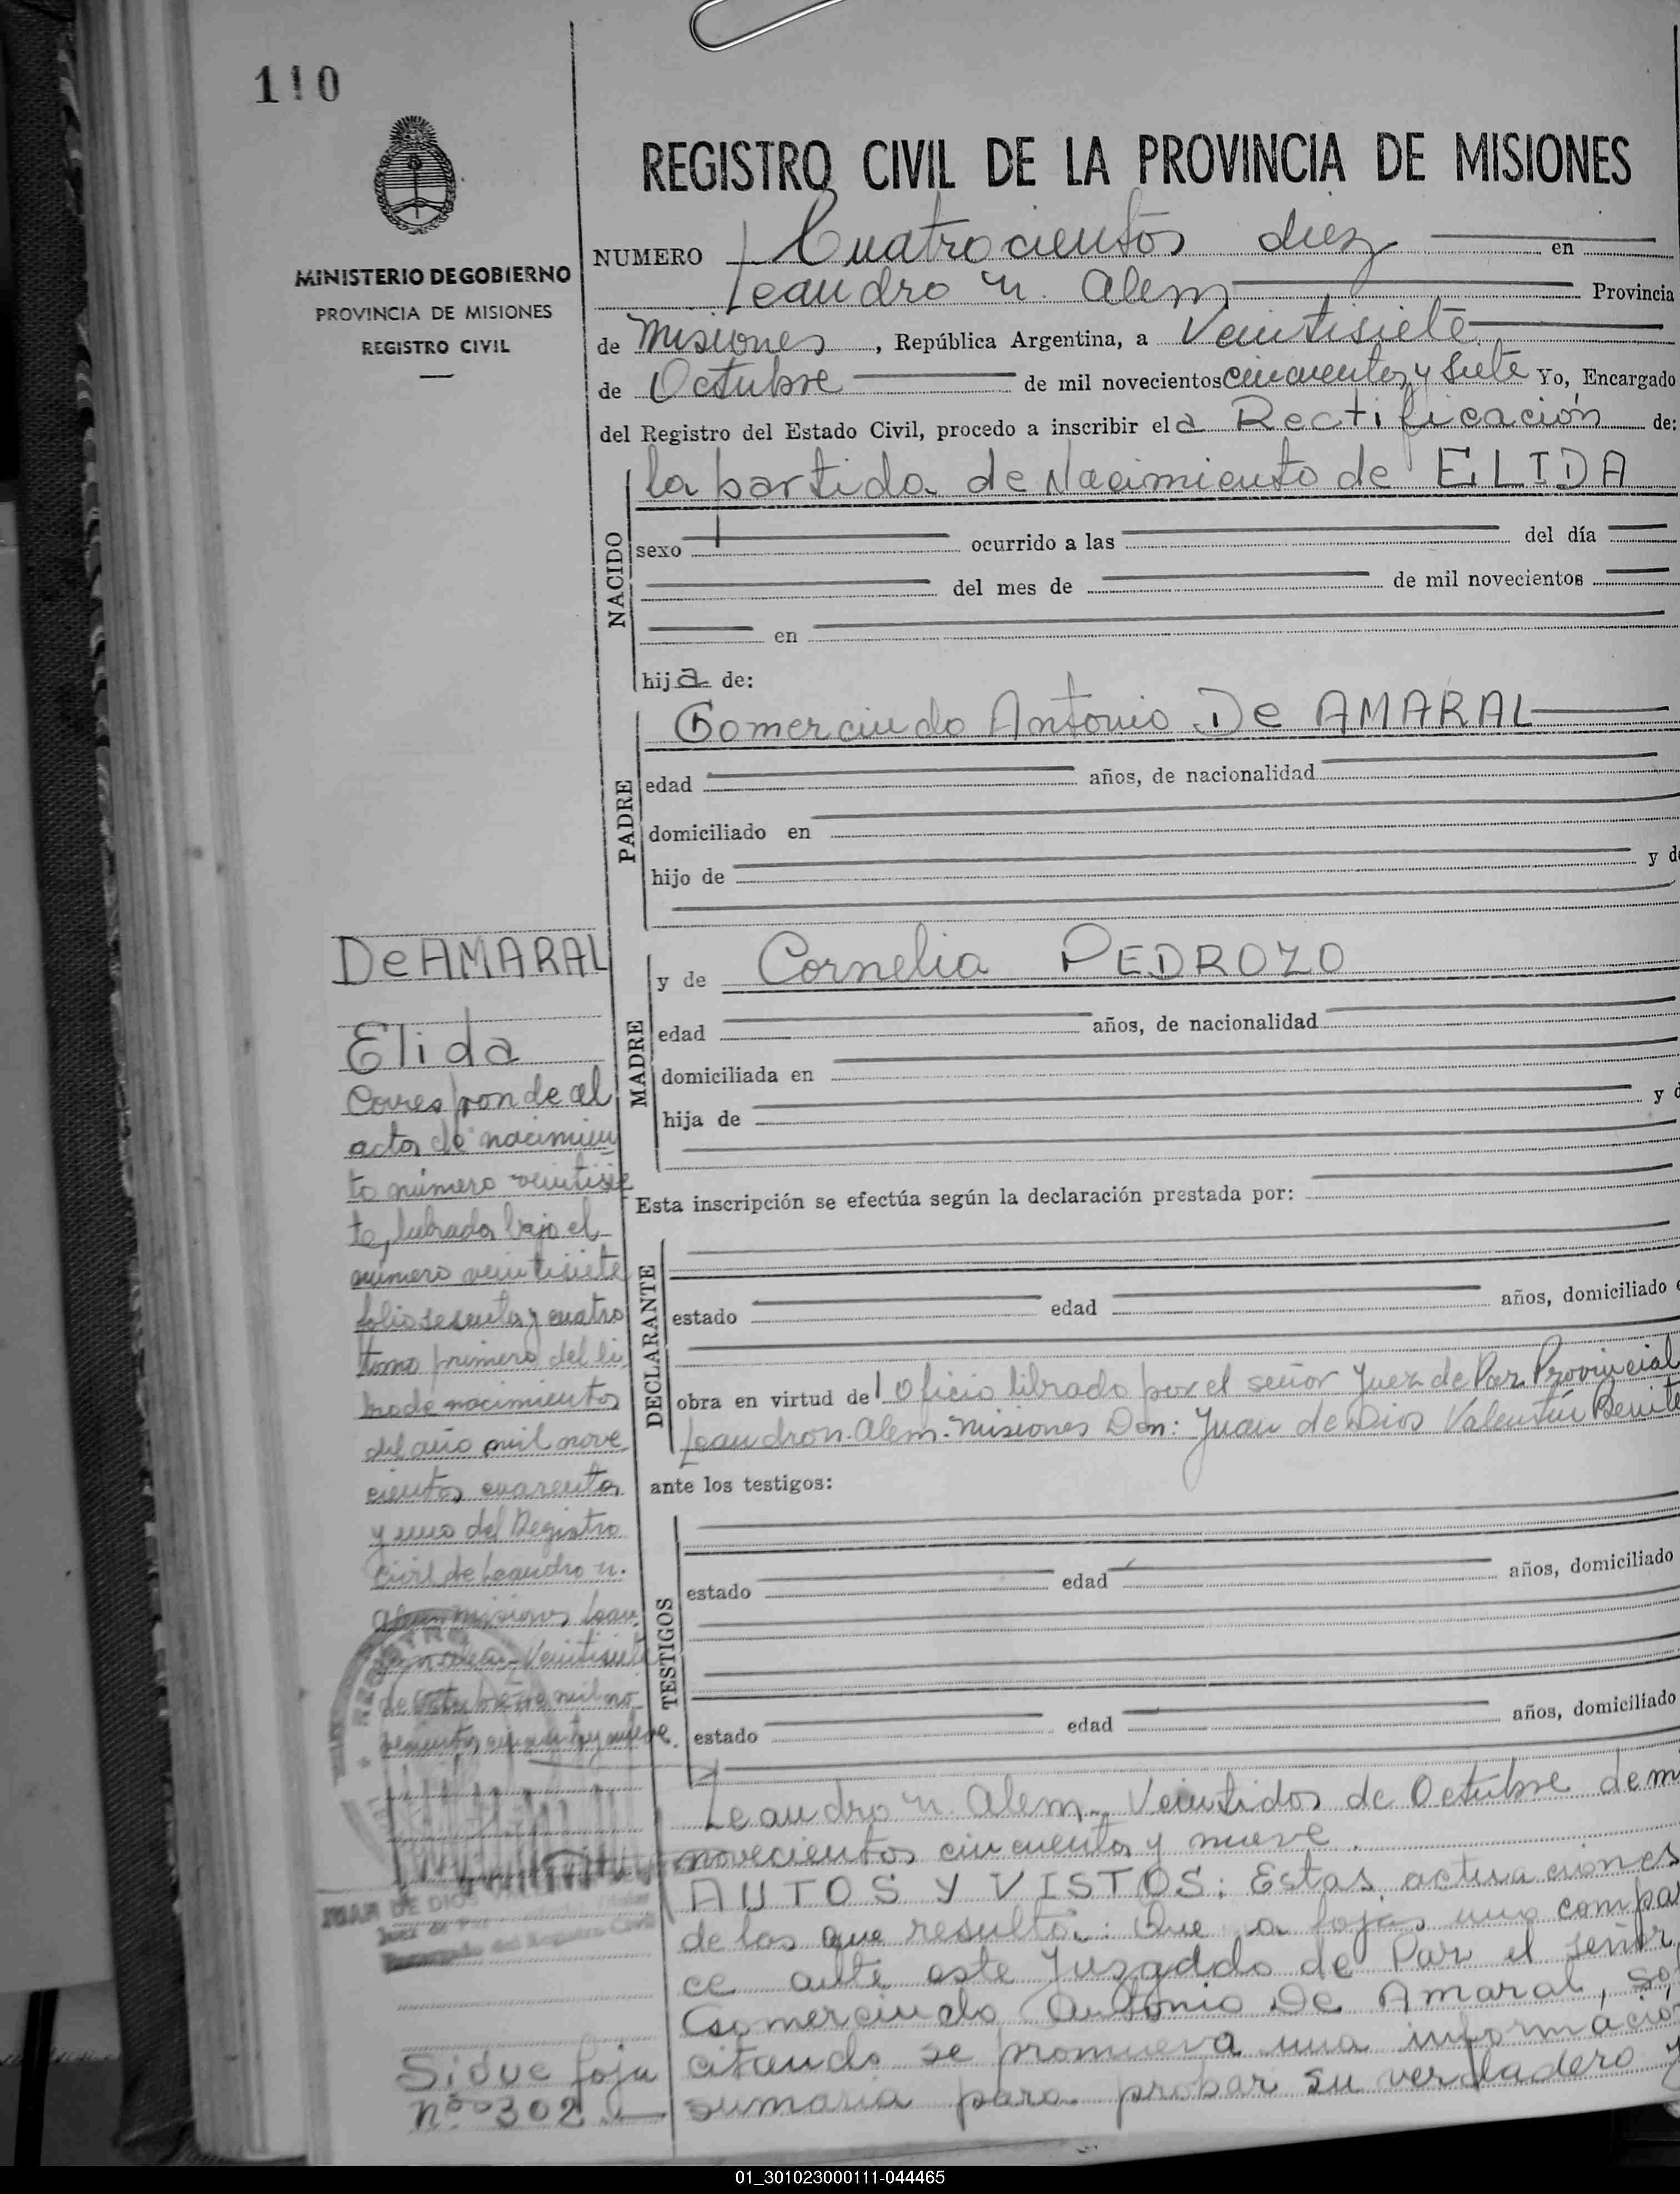 110
REGISTRO CIVIL DE LA PROVINCIA DE MISIONES
MINISTERIO DE GOBIERNO
PROVINCIA DE MISIONES
REGISTRO CIVIL
NUMERO Cuatrocientos diez en
Leandro N. Alem Provincia
de Misiones , República Argentina, a Veintisiete
de Octubre de mil novecientos cincuenta y siete Yo, Encargado
del Registro del Estado Civil, procedo a inscribir el a Rectificación de:
NACIDO
la partida de Nacimiento de ELIDA
sexo ocurrido a las del día
del mes de de mil novecientos
en
hija de:
PADRE
Gomercindo Antonio De AMARAL
edad años, de nacionalidad
domiciliado en
hijo de y d
De AMARAL
Elida
Corresponde al
acta de nacimien
to número veintisie
te, labrada bajo el
número veintisiete
folio sesenta y cuatro
tomo primero del li
bro de nacimientos
del año mil nove
cientos cuarenta
y uno del Registro
Civil de Leandro N.
Alem Misiones Lean
Veintisiete
de Octubre de mil no
vecientos cincuenta y nueve.
JUAN DE DIOS
Juez de
Encargado del Registro Civil
Sigue foja
nº 302
MADRE
y de Cornelia PEDROZO
edad años, de nacionalidad
domiciliada en
hija de y d
Esta inscripción se efectúa según la declaración prestada por:
DECLARANTE
estado edad años, domiciliado e
obra en virtud del Oficio librado por el señor Juez de Paz Provincial
Leandro N. Alem. Misiones Don: Juan de Dios Valentín Benite
ante los testigos:
TESTIGOS
estado edad años, domiciliado
estado edad años, domiciliado
Leandro N. Alem, Veintidos de Octubre de m
novecientos cincuenta y nueve.
AUTOS Y VISTOS: Estas actuaciones
de las que resulta: Que a fojas uno compar
ce ante este Juzgado de Paz el señor
Gomercindo Antonio De Amaral, sol
citando se promueva una informació
sumaria para probar su verdadero
01_301023000111-044465